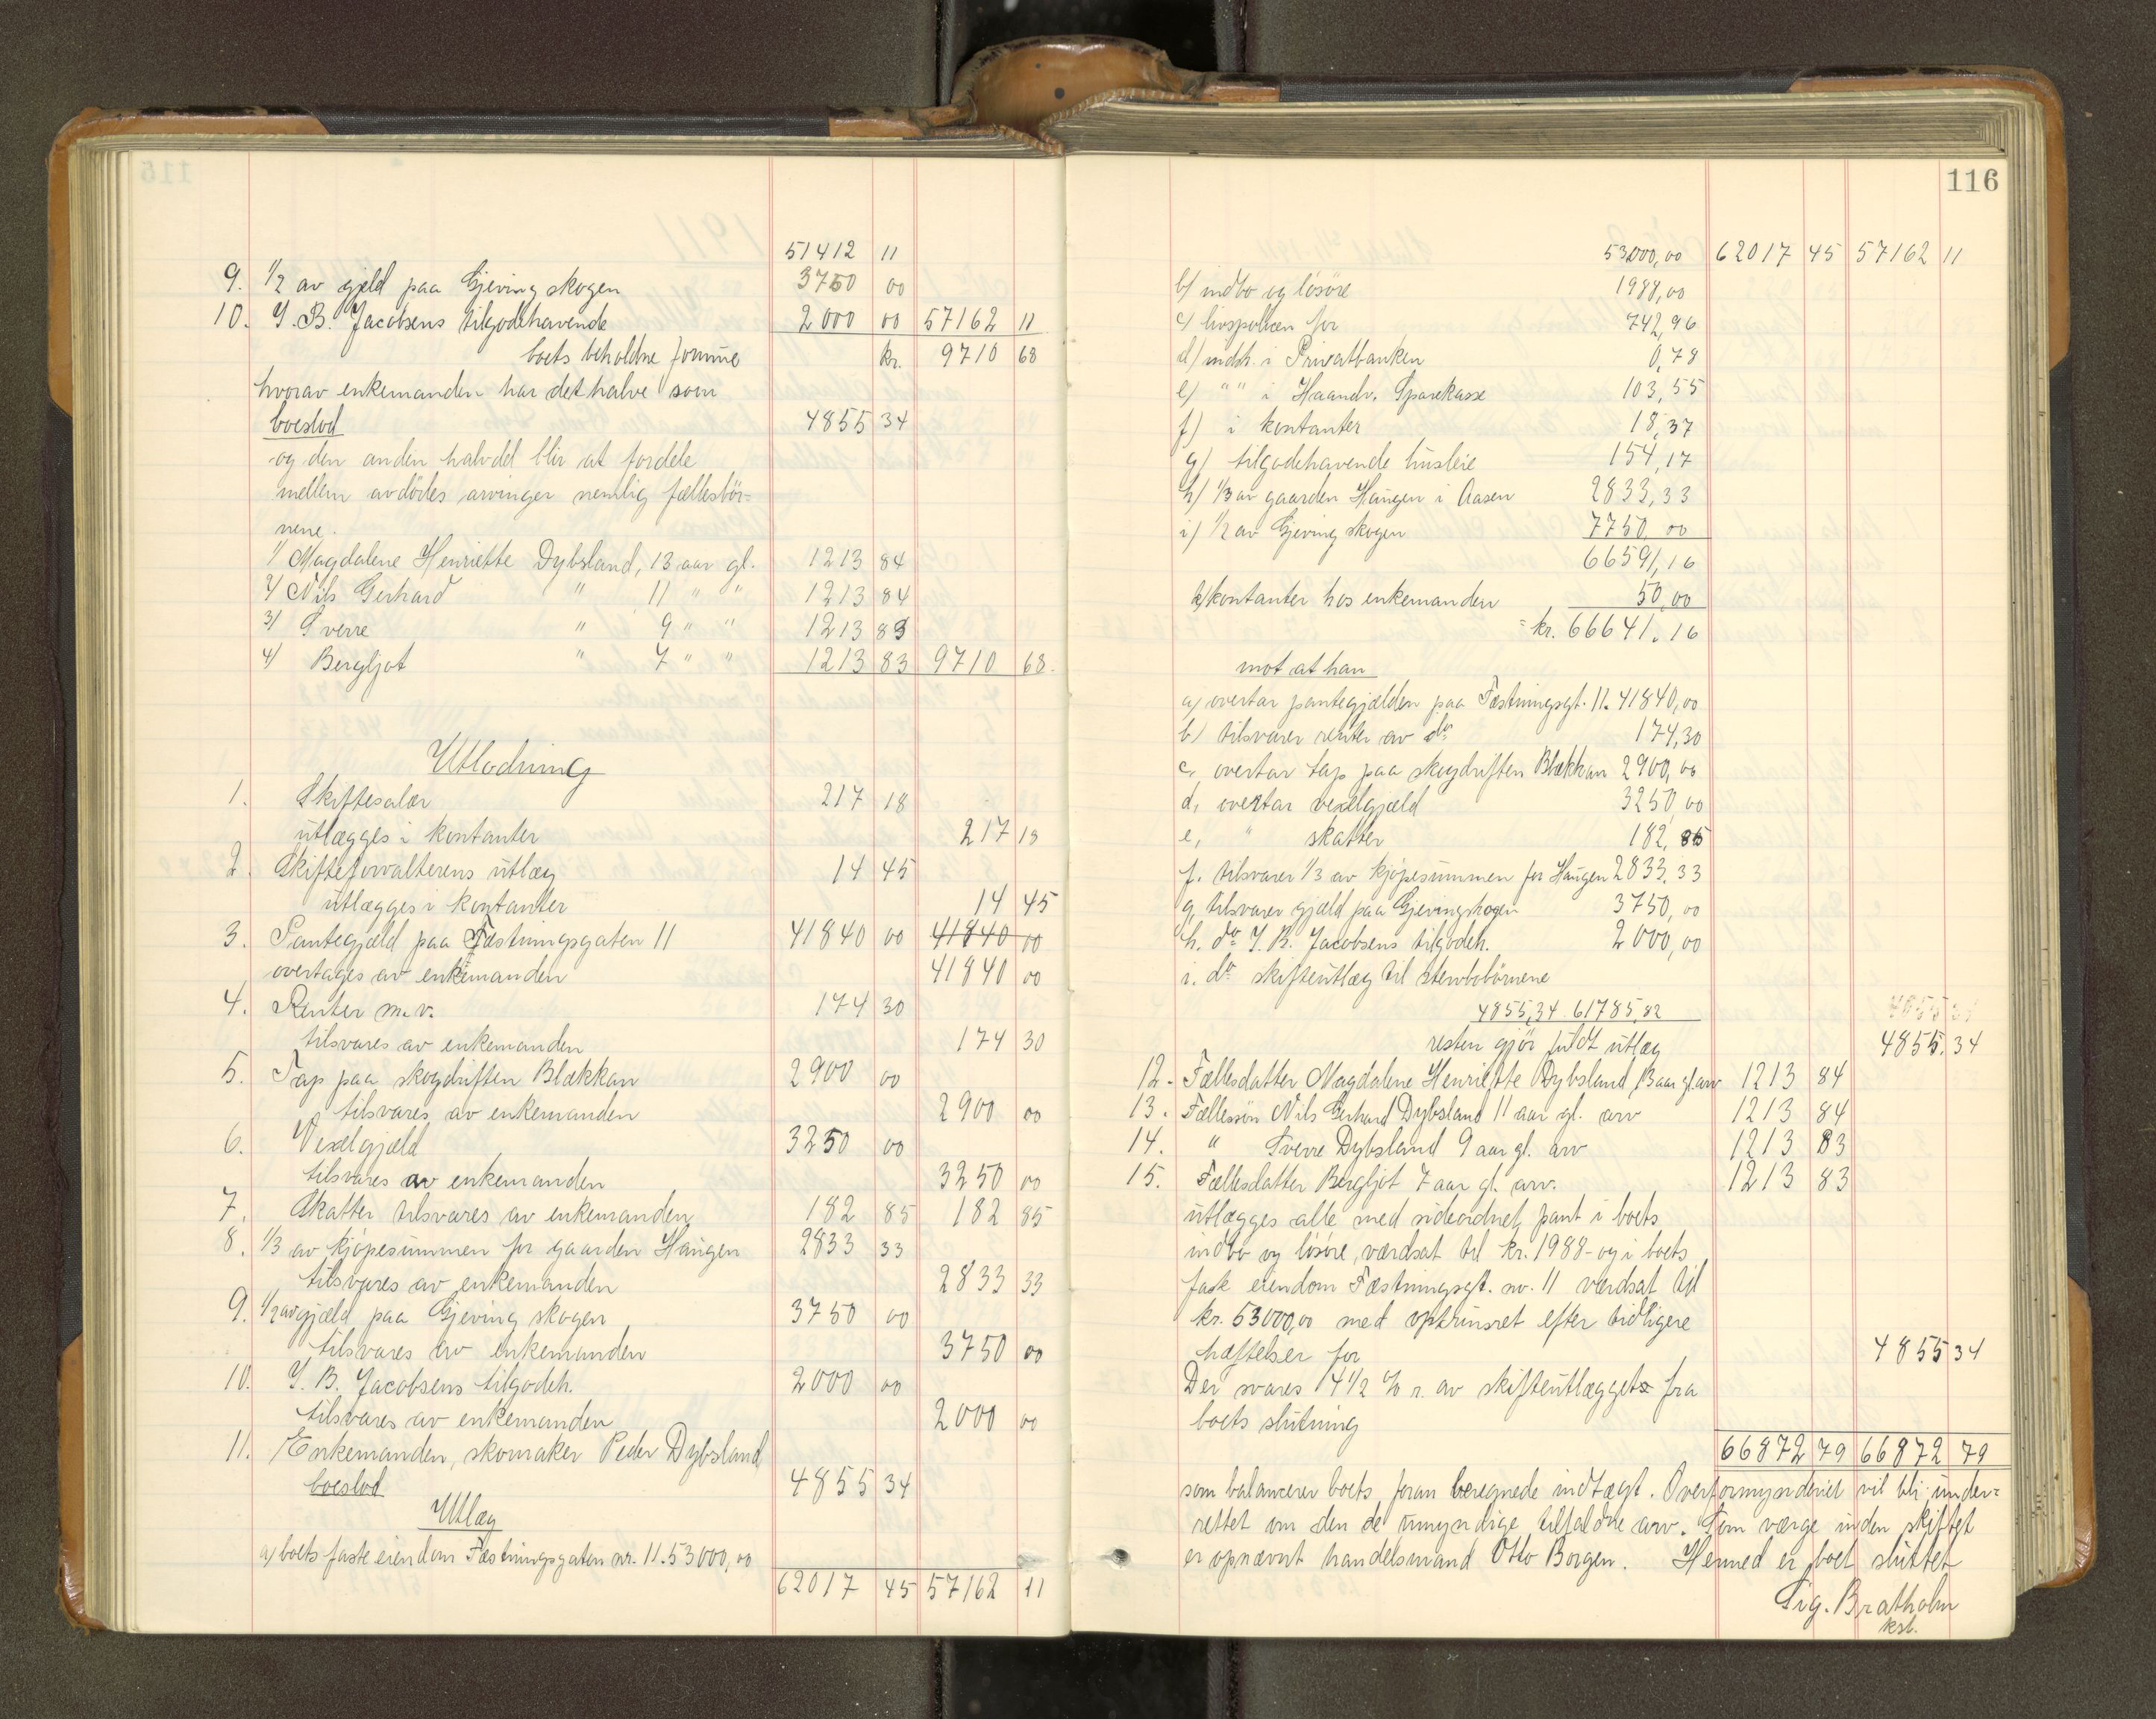 51412 11
9. 1/2 av gjeld paa Gjeving skogen 3750 00
10. Y. B. Jacobsens tilgodehavende 2000 00 57162 11
boets beholdne formue kr. 9710 68
hvorav enkemanden har det halve som
boeslod 4855 34
og den anden halvdel blir at fordele
mellem avdødes arvinger nemlig fællesbör-
nene.
1/ Magdalene Henriette Dybsland, 13 aar gl. 1213 84
2/ Nils Gerhard " 11 " " 1213 84
3/ Sverre " 9 " " 1213 83
4/ Bergljot " 7 " " 1213 83 9710 68.
Utlodning
1. Skiftesalær 217 18
utlægges i kontanter 217 18
2. Skifteforvalterens utlæg 14 45
utlægges i kontanter 14 45
3. Pantegjæld paa Fæstningsgaten 11 41840 00 41840 00
overtages av enkemanden 41840 00
4. Renter m.v. 174 30
tilsvares av enkemanden 174 30
5. Tap paa skogdriften Blækkan 2900 00
tilsvares av enkemanden 2900 00
6. Vexelgjæld 3250 00
tilsvares av enkemanden 3250 00
7. Skatter tilsvares av enkemanden 182 85 182 85
8. 1/3 av kjøpesummen for gaarden Haugen 2833 33
tilsvares av enkemanden 2833 33
9. 1/2 av gjæld paa Gjeving skogen 3750 00
tilsvares av enkemanden 3750 00
10. Y. B. Jacobsens tilgodeh. 2000 00
tilsvares av enkemanden 2000 00
11. Enkemanden, skomaker Peder Dybsland
boeslod 4855 34
Utlæg
a/ boets faste eiendom Fæstningsgaten nr. 11. 53000,00
62017 45 57162 11
116
53000,00 62017 45 57162 11
b/ indbo og løsøre 1988,00
c/ livspolicen for 742,96
d/ indsk. i Privatbanken 0,78
e) " " i Haandv. Sparekasse 103,55
f) i kontanter 18,37
g) tilgodehavende husleie 154,17
h/ 1/3 av gaarden Haugen i Aasen 2833,33
i) 1/2 av Gjeving skogen 7750,00
66591,16
k/ kontanter hos enkemanden 50,00
= kr. 66641.16
mot at han
a/ overtar pantegjælden paa Fæstningsgt. 11. 41840,00
b) tilsvarer renter av do 174,30
c, overtar tap paa skogdriften Blækkan 2900,00
d, overtar vexelgjæld 3250,00
e, " skatter 182,85
f. tilsvarer 1/3 av kjøpesummen for Haugen 2833,33
g, tilsvarer gjæld paa Gjevingskogen 3750,00
h. do Y. B. Jacobsens tilgodeh. 2000,00
i. do skifteutlæg til stervbobörnene
4855,34 61785,82
resten gjør fuldt utlæg 4855.34
12. Fællesdatter Magdalene Henriette Dybsland 13 aar gl. arv 1213 84
13. Fællessøn Nils Gerhard Dybsland 11 aar gl. arv 1213 84
14. " Sverre Dybsland 9 aar gl. arv 1213 83
15. Fællesdatter Bergljot 7 aar gl. arv. 1213 83
utlægges alle med sideordnet pant i boets
indbo og løsøre, værdsat til kr. 1988- og i boets
faste eiendom Fæstningsgt. nr. 11 værdsat til
kr. 53000,00 med optrinsret efter tidligere
hæftelser for 4855 34
Der svares 4 1/2 % r. av skifteutlægget fra
boets slutning
66872 79 66872 79
som balancerer boets foran beregnede indtægt. Overformynderiet vil bli under-
rettet om den de umyndige tilfaldne arv. Som værge inden skiftet
er opnævnt handelsmand Otto Borgen. Hermed er boet sluttet
Sig. Bratholm
kst.